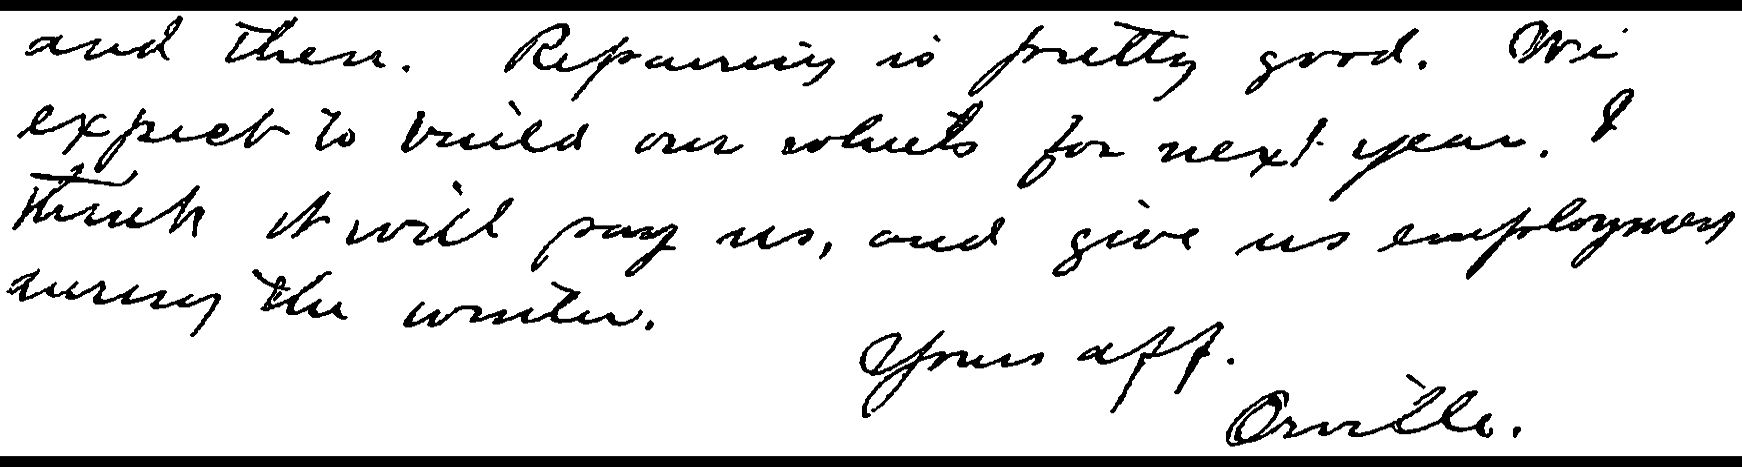 and then. Repairing is pretty good. We
expect to build our wheels for next year. I
think it will pay us, and give us employment
during the winter.
Yours aff.
Orville.